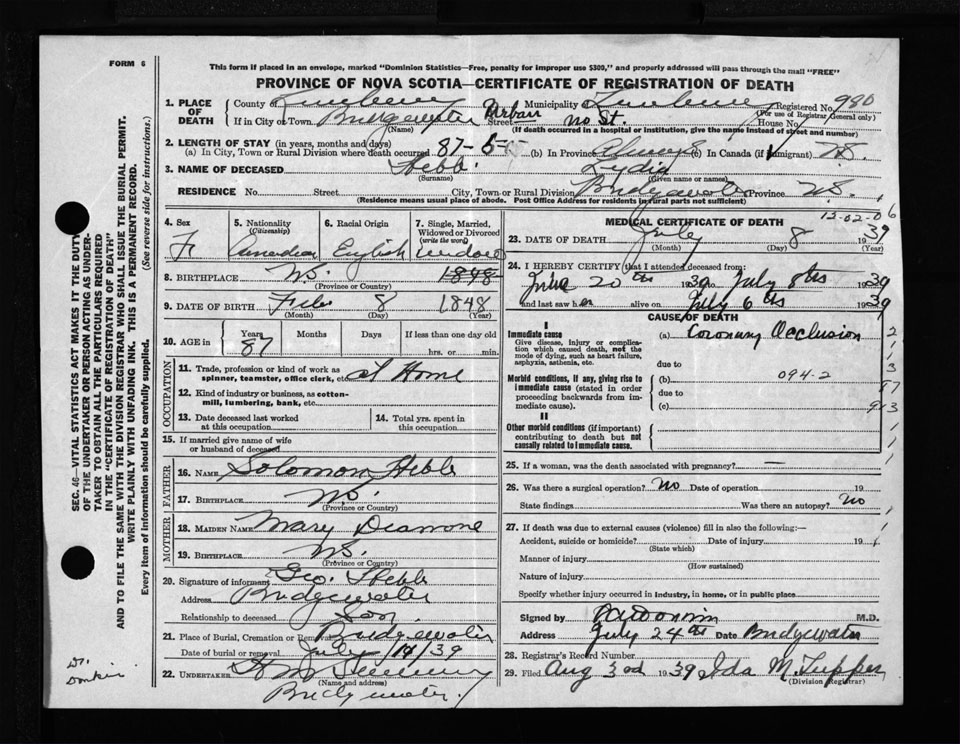 FORM 6
This form if placed in an envelope, marked "Dominion Statistics—Free, penalty for improper use $300," and properly addressed will pass through the mail "FREE"
PROVINCE OF NOVA SCOTIA—CERTIFICATE OF REGISTRATION OF DEATH
1. PLACE OF DEATH County Lunenburg Municipality Lunenburg Registered No. 980
(For use of Registrar General only)
If in City or Town Bridgewater Urban Street No St. House No.
(Name) (If death occurred in a hospital or institution, give the name instead of street and number)
2. LENGTH OF STAY (in years, months and days)
(a) In City, Town or Rural Division where death occurred 87-5 (b) In Province Always (c) In Canada (if immigrant)
3. NAME OF DECEASED Hebb Lydia
(Surname) (Given name or names)
RESIDENCE No. Street City, Town or Rural Division Bridgewater Province N.S.
(Residence means usual place of abode. Post Office Address for residents in rural parts not sufficient)
4. Sex F
5. Nationality (Citizenship) Canadian
6. Racial Origin English
7. Single, Married, Widowed or Divorced (write the word) Widow
8. BIRTHPLACE N.S. 1848
(Province or Country)
9. DATE OF BIRTH Feb 8 1848
(Month) (Day) (Year)
10. AGE in Years 87 Months Days If less than one day old hrs. or min.
OCCUPATION
11. Trade, profession or kind of work as spinner, teamster, office clerk, etc. At Home
12. Kind of industry or business, as cotton-mill, lumbering, bank, etc.
13. Date deceased last worked at this occupation
14. Total yrs. spent in this occupation
15. If married give name of wife or husband of deceased
FATHER
16. NAME Solomon Hebb
17. BIRTHPLACE N.S.
(Province or Country)
MOTHER
18. MAIDEN NAME Mary
19. BIRTHPLACE N.S.
(Province or Country)
20. Signature of informant Geo. Hebb
Address Bridgewater
Relationship to deceased Son
21. Place of Burial, Cremation or Removal Bridgewater
Date of burial or removal July /39
22. UNDERTAKER
(Name and address)
Bridgewater
MEDICAL CERTIFICATE OF DEATH
13-02-06
23. DATE OF DEATH July 8 1939
(Month) (Day) (Year)
24. I HEREBY CERTIFY that I attended deceased from:
June 20th 1939 to July 8th 1939
and last saw her alive on July 6th 1939
CAUSE OF DEATH
I
Immediate cause
Give disease, injury or complication which caused death, not the mode of dying, such as heart failure, asphyxia, asthenia, etc.
(a) Coronary Occlusion
due to
Morbid conditions, if any, giving rise to immediate cause (stated in order proceeding backwards from immediate cause).
(b) 094-2
due to
(c)
II
Other morbid conditions (if important) contributing to death but not causally related to immediate cause.
25. If a woman, was the death associated with pregnancy? —
26. Was there a surgical operation? No Date of operation 19
State findings Was there an autopsy? No
27. If death was due to external causes (violence) fill in also the following:—
Accident, suicide or homicide? Date of injury 19
(State which)
Manner of injury
(How sustained)
Nature of injury
Specify whether injury occurred in industry, in home, or in public place
Signed by M.D.
Address July 24th Date Bridgewater
28. Registrar's Record Number
29. Filed Aug 3rd 1939 Ida M. Tupper
(Division Registrar)
SEC. 46—VITAL STATISTICS ACT MAKES IT THE DUTY OF THE UNDERTAKER OR PERSON ACTING AS UNDERTAKER TO OBTAIN ALL THE PARTICULARS REQUIRED IN THE "CERTIFICATE OF REGISTRATION OF DEATH" AND TO FILE THE SAME WITH THE DIVISION REGISTRAR WHO SHALL ISSUE THE BURIAL PERMIT.
WRITE PLAINLY WITH UNFADING INK. THIS IS A PERMANENT RECORD.
Every item of information should be carefully supplied. (See reverse side for instructions.)
Dr.